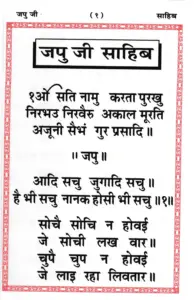 जपु जी (१) साहिब
जपु जी साहिब
१ओं सति नामु करता पुरखु
निरभउ निरवैरु अकाल मूरति
अजूनी सैभं गुर प्रसादि॥
॥ जपु॥
आदि सचु जुगादि सचु॥
है भी सचु नानक होसी भी सचु॥१॥
सोचै सोचि न होवई
जे सोची लख वार॥
चुपै चुप न होवई
जे लाइ रहा लिवतार॥